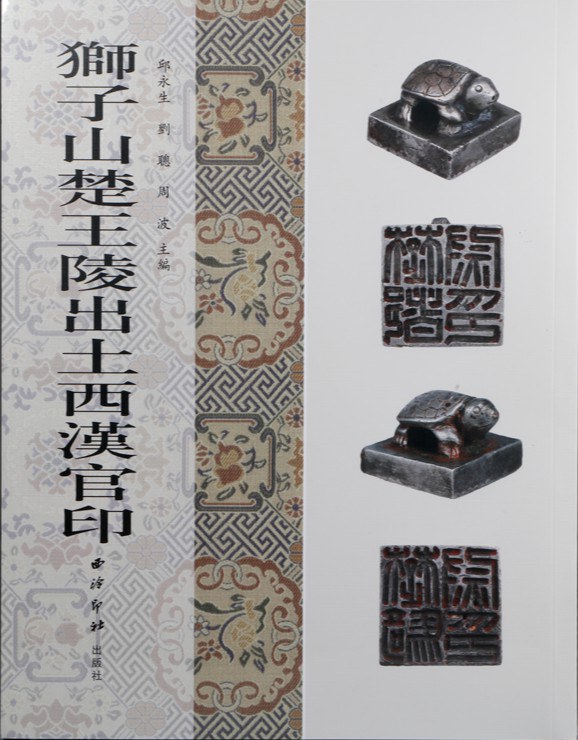 獅子山楚王陵出土西漢官印
邱永生 劉聰 周波 主編
西泠印社出版社